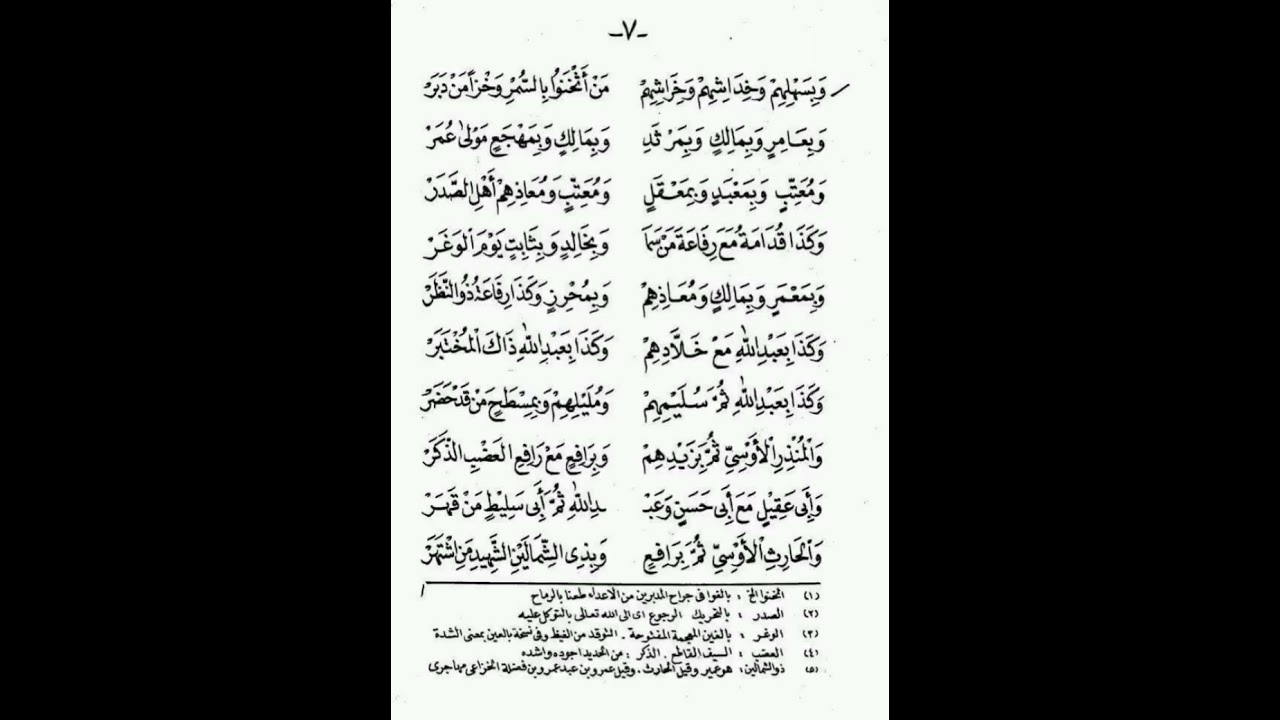 -٧-
وَبِسَهْلِهِمْ وَخِدَاشِهِمْ وَخِرَاشِهِمْ مَنْ أَثْخَنُوا بِالسُّمْرِ وَخْزاً مَنْ دَبَرْ
وَبِعَامِرٍ وَبِمَالِكٍ وَبِمَرْثَدِ وَبِمَالِكٍ وَبِمَهْجَعٍ مَوْلَىٰ عُمَرْ
وَمُعَتِّبٍ وَبِمَعْبَدٍ وَبِمَعْقَلٍ وَمُعَتِّبٍ وَمُعَاذِهِمْ أَهْلِ الصَّدَرْ
وَكَذَا قُدَامَةُ مَعَ رِفَاعَةَ مَنْ سَمَا وَبِخَالِدٍ وَبِثَابِتٍ يَوْمَ الْوَغَرْ
وَبِمَعْمَرٍ وَبِمَالِكٍ وَمُعَاذِهِمْ وَبِمُحْرِزٍ وَكَذَا رِفَاعَةُ ذُو النَّظَرْ
وَكَذَا بِعَبْدِ اللّٰهِ مَعْ خَلَّادِهِمْ وَكَذَا بِعَبْدِ اللّٰهِ ذَاكَ الْمُخْتَبَرْ
وَكَذَا بِعَبْدِ اللّٰهِ ثُمَّ سُلَيْمِهِمْ وَمُلَيْلِهِمْ وَبِمِسْطَحٍ مَنْ قَدْ حَضَرْ
وَالْمُنْذِرِ الْأَوْسِيِّ ثُمَّ بِزَيْدِهِمْ وَبِرَافِعٍ مَعْ رَافِعِ الْعَضْبِ الذَّكَرْ
وَأَبِى عَقِيْلٍ مَعَ أَبِى حَسَنٍ وَعَبْـ ـدِ اللّٰهِ ثُمَّ أَبِى سَلِيْطٍ مَنْ قَهَرْ
وَالْحَارِثِ الْأَوْسِيِّ ثُمَّ بِرَافِعٍ وَبِذِى الشِّمَالَيْنِ الشَّهِيْدِ مَنِ اشْتَهَرْ
(١) اثخنوا الخ : بالغوا فى جراح المدبرين من الاعداء طعنا بالرماح
(٢) الصدر : بالتحريك الرجوع اى الى الله تعالى بالتوكل عليه
(٣) الوغر : بالغين المعجمة المفتوحة . التوقد من الغيظ وفى نسخة بالعين بمعنى الشدة
(٤) العضب : السيف القاطع . الذكر : من الحديد اجوده واشده
(٥) ذو الشمالين: هو عمير وقيل الحارث . وقيل عمرو بن عبد عمرو بن فضلة الخزاعى مهاجرى